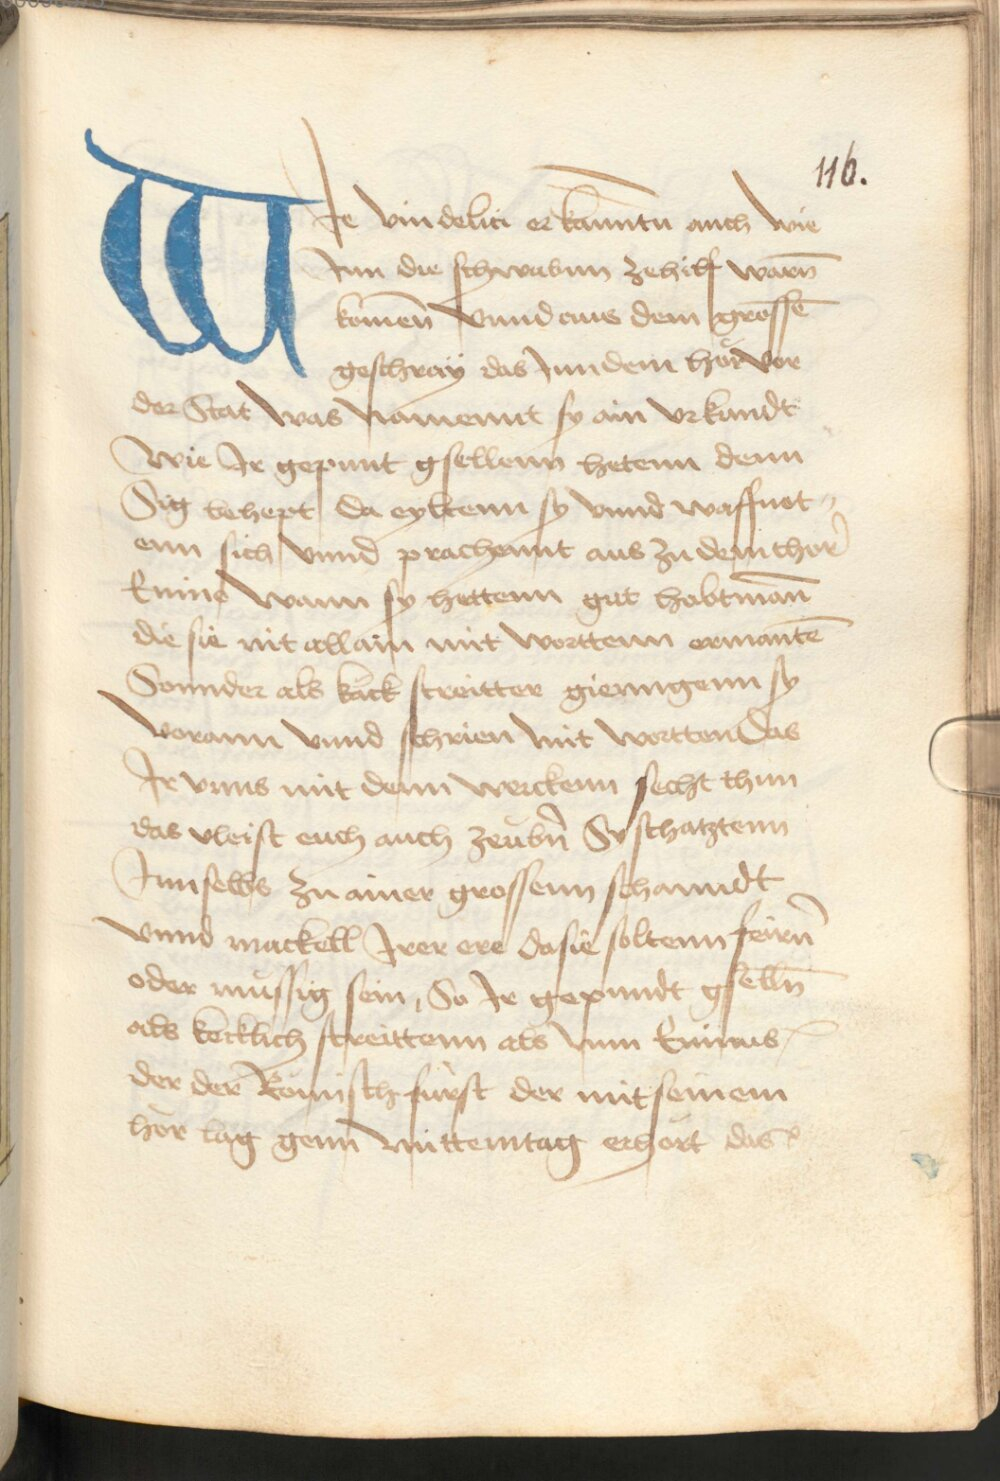 116.
WIe vindelici erkanntn auch wie
Inn die schwabnn zehilf warn̄
komen̄ vnnd aus dem grossē
geschray das Inn dem hör vor
der Stat was namennt sy ain vrkandt
wie Ir gepunt gsellenn hetenn denn
Sig behept da eyltenn sy vnnd waffnot„
enn sich vnnd prachennt aus zu dem thor
wann sy hettenn gut habtman̄
die sie nit allain mit worttenn ermantē
Sonnder als käck streitter gienngenn sy
vorann vnnd schrien mit wortten Das
Ir vnns mit denn werckenn secht thun
das vleist euch auch zeubn̄ Sy schatztenn
Innselbs zu ainer grossenn schanndt
vnnd mackell Irer ere da sie soltenn feirn̄
oder müssig sein, So Ir gepundt gselln̄
als kecklich streittenn als vnn
der der Römisch fürst der mit seinem
hör lag genn mittemtag erhört das